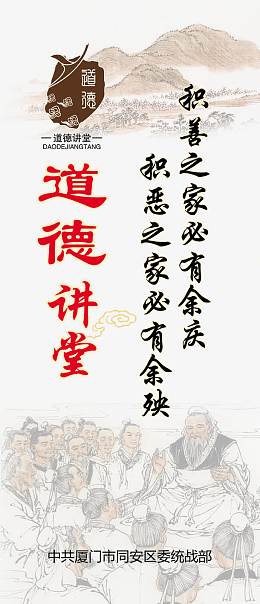 道德
道德讲堂
DAODEJIANGTANG
积善之家必有余庆
积恶之家必有余殃
道德讲堂
中共厦门市同安区委统战部